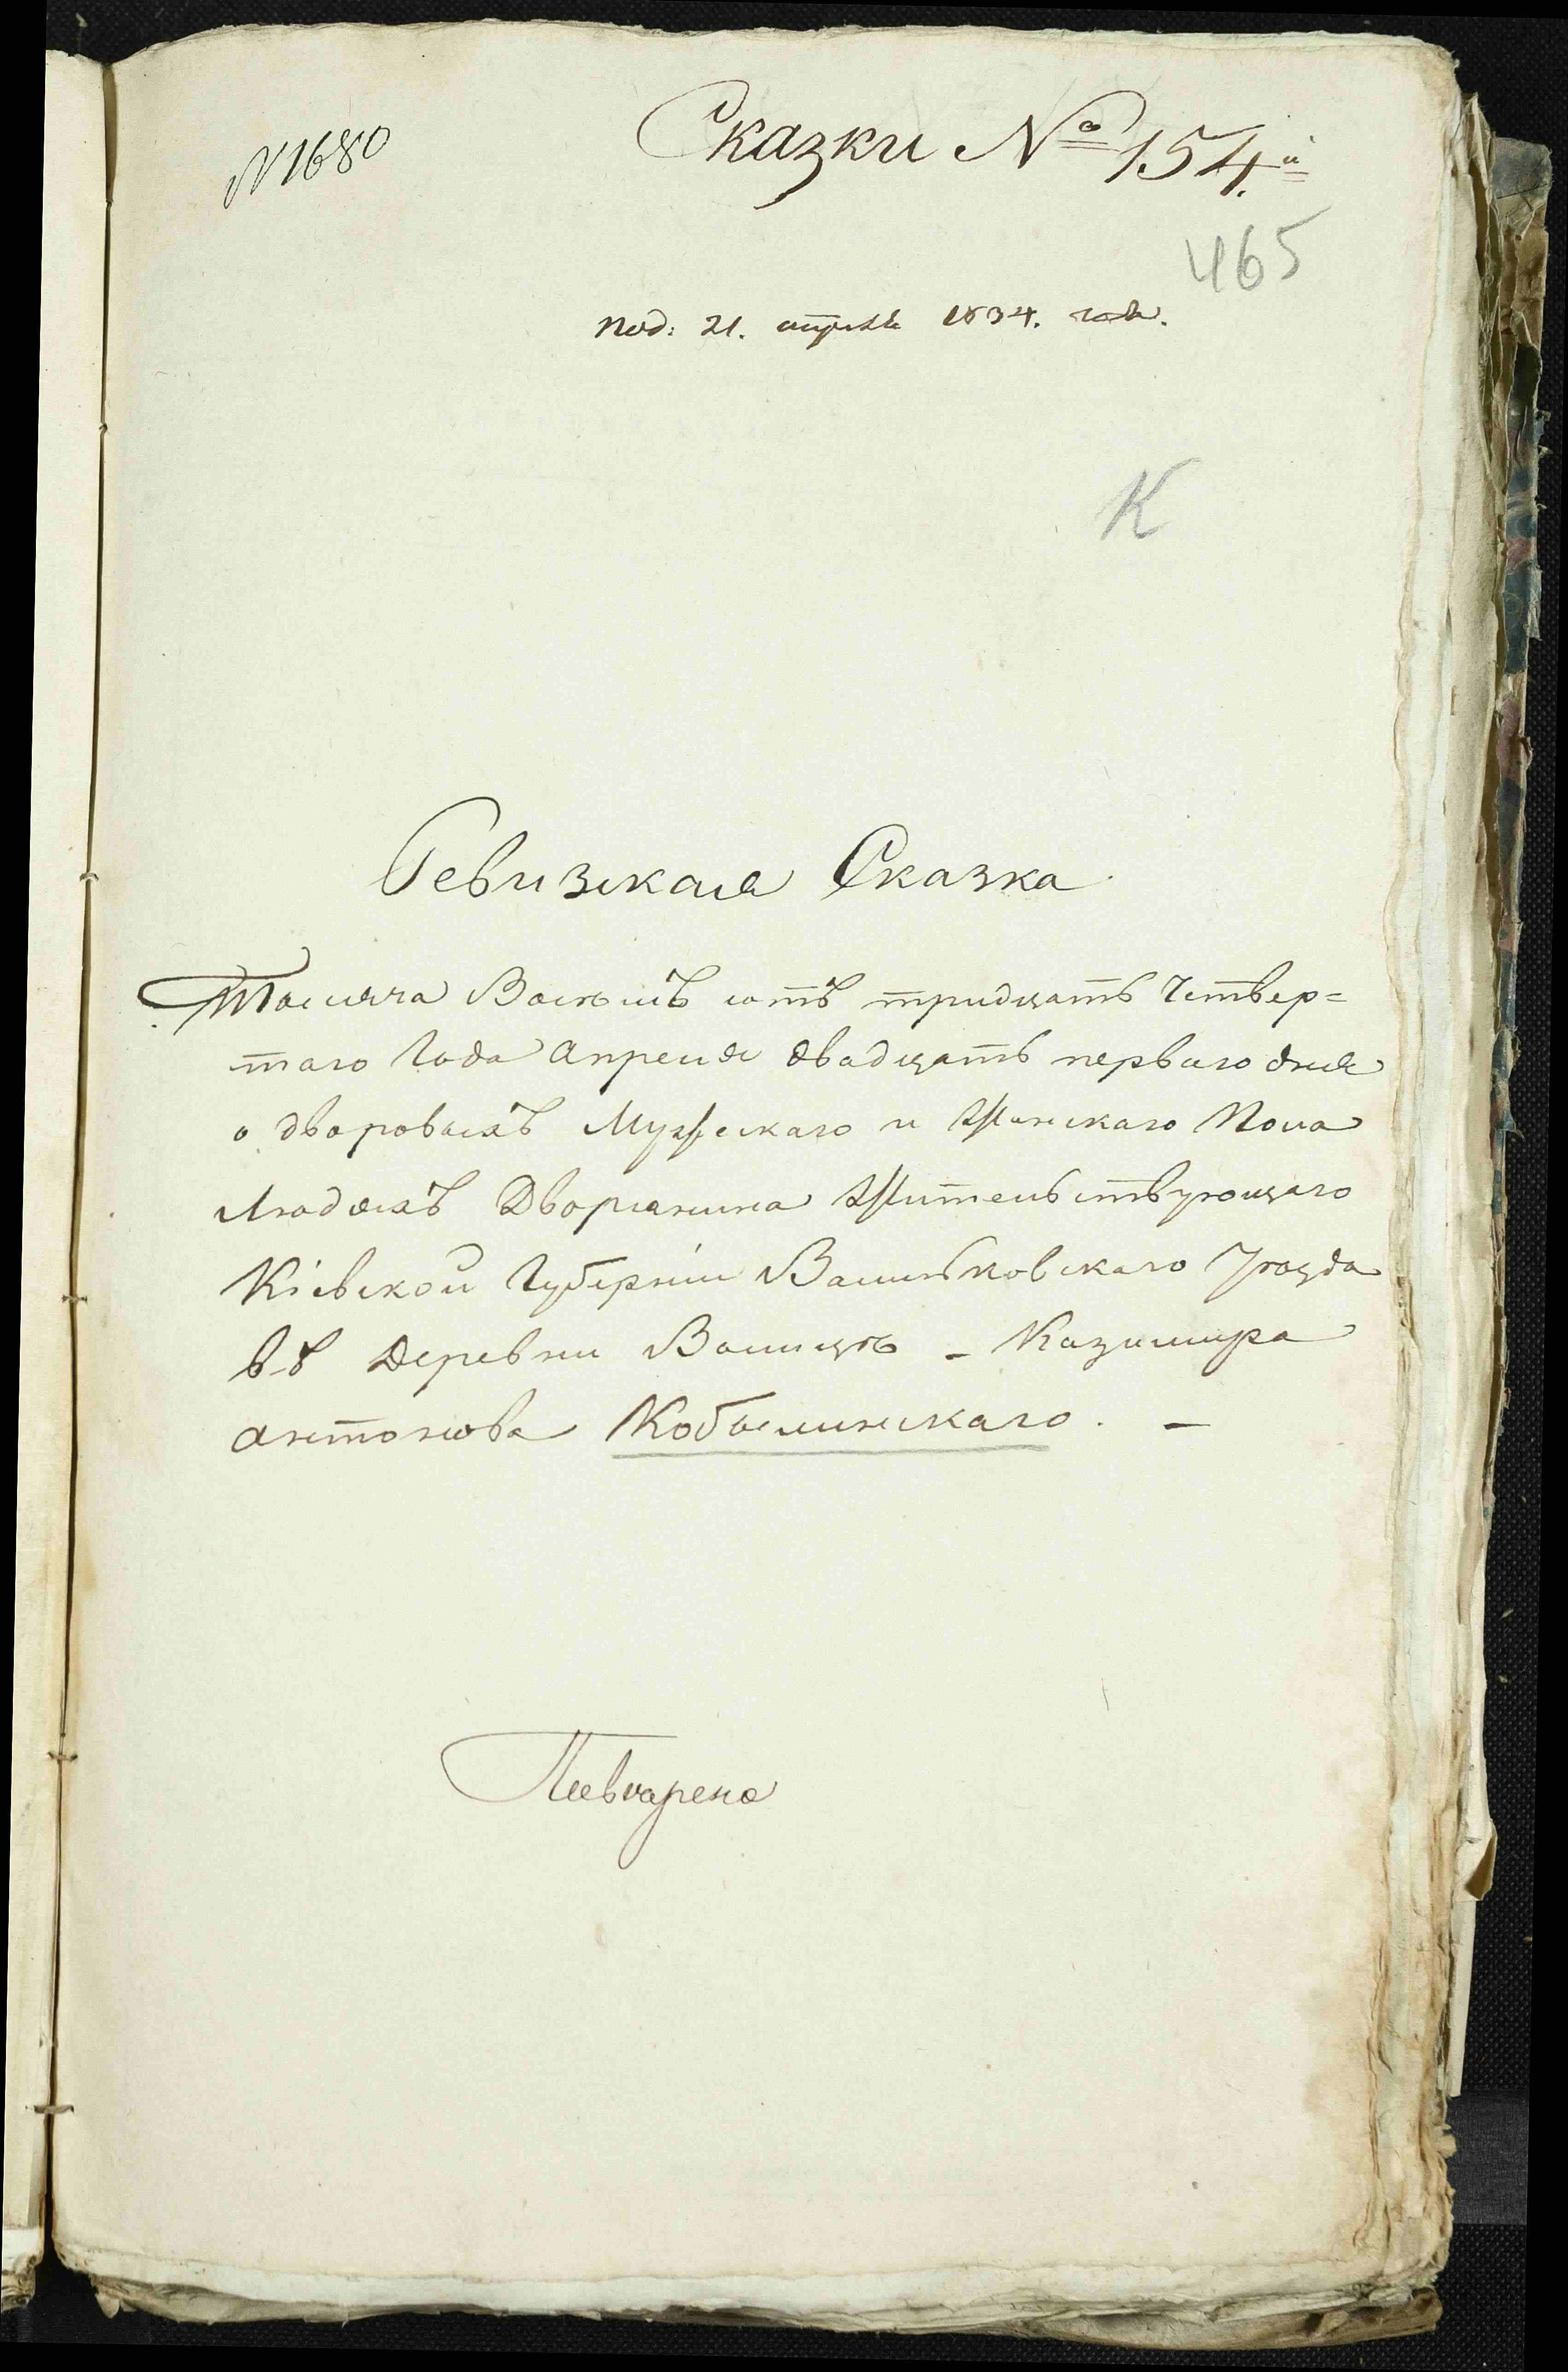 N 1680
Сказки № 154.й
465
Под: 21. апреля 1834. года.
К
Ревизская Сказка
Тысяча Восемъ сотъ тридцать Четвер=
таго Года Апреля двадцать перваго дня
о дворовыхъ Мужескаго и Женскаго Пола
Людяхъ Дворянина Жительствующаго
Кіевской Губерніи Васильковскаго Уезда
въ Деревни - Казимира
Антонова Кобылинскаго. -